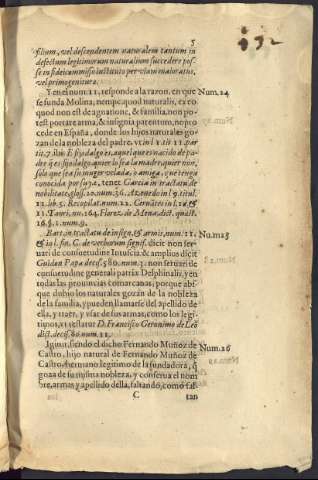 5
filium, vel descendentem naturalem tantum in
defectum legitimorum naturalium succedere pos-
se in fideicommisso instituto per viam maioratus,
vel primogenitura.
Y en el num. 11. responde a la razon, en que Num. 24
se funda Molina, nempe, quod naturalis, ex eo
quod non est de agnatione, & familia, non po-
test portare arma, & insignia parentum, no pro
cede en España, donde los hijos naturales go-
zan de la nobleza del padre, vt in l. 1. tit. 11. par
tit. 7. ibi: E fijodalgo es, aquel que es nacido de pa-
dre q̃ es fijodalgo, quier lo sea la madre, quier non,
solo que sea su muger velada, o amiga, que tenga
conocida por suya, tenet Garcia in tractatu de
nobilitate, gloss. 20. num. 36. Azeuedo in l. 9. titul.
11. lib. 5. Recopilat. num. 22. Ceruātes in l. 12. &
11. Tauri, nu. 164. Florez de Mena, dict. quæst.
16. §. 1. num. 9.
Bart. in tractatu de insign. & armis, num. 11. Num. 25
& in l. fin. C. de verborum signif. dicit non ser-
uari de consuetudine in Tuscia, & amplius dicit
Guidan Papa decis. 580. num. 3. non seruari de
consuetudine generali patriæ Delphinalis, y en
todas las prouincias comarcanas, porque abs-
que dubio los naturales gozan de la nobleza
de la familia, y pueden llamarse del apellido de
ella, y traer, y vsar de sus armas, como los legi-
timos, vt testatur D. Francisco Geronimo de Leō
dict. decis. 80. num. 11.
Igitur, siendo el dicho Fernando Muñoz de Num. 26
Castro, hijo natural de Fernando Muñoz de
Castro, hermano legitimo de la fundadora, q̃
goza de su misma nobleza, y conserua el nom-
bre, armas y apellido della, faltando, como fal-
C tan